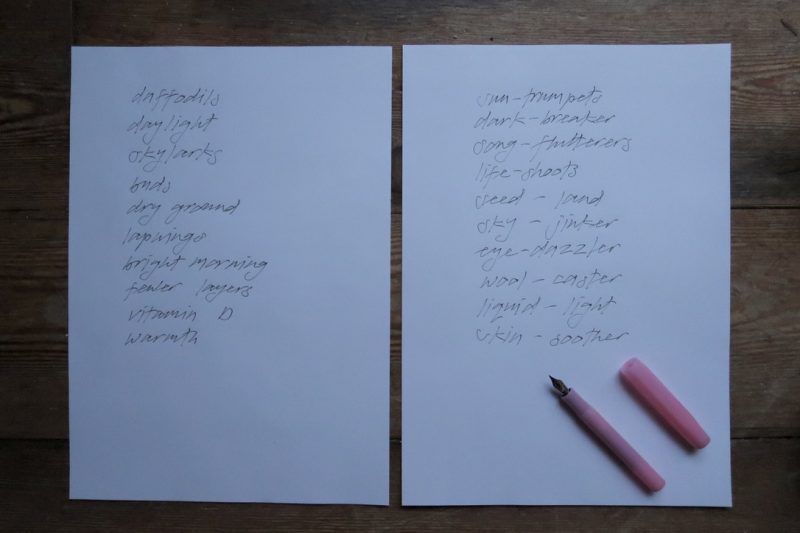 daffodils
daylight
skylarks
buds
dry ground
lapwings
bright morning
fewer layers
vitamin D
warmth
sun-trumpets
dark-breaker
song-flutterers
life-shoots
seed-land
sky-jinker
eye-dazzler
wool-caster
liquid-light
skin-soother